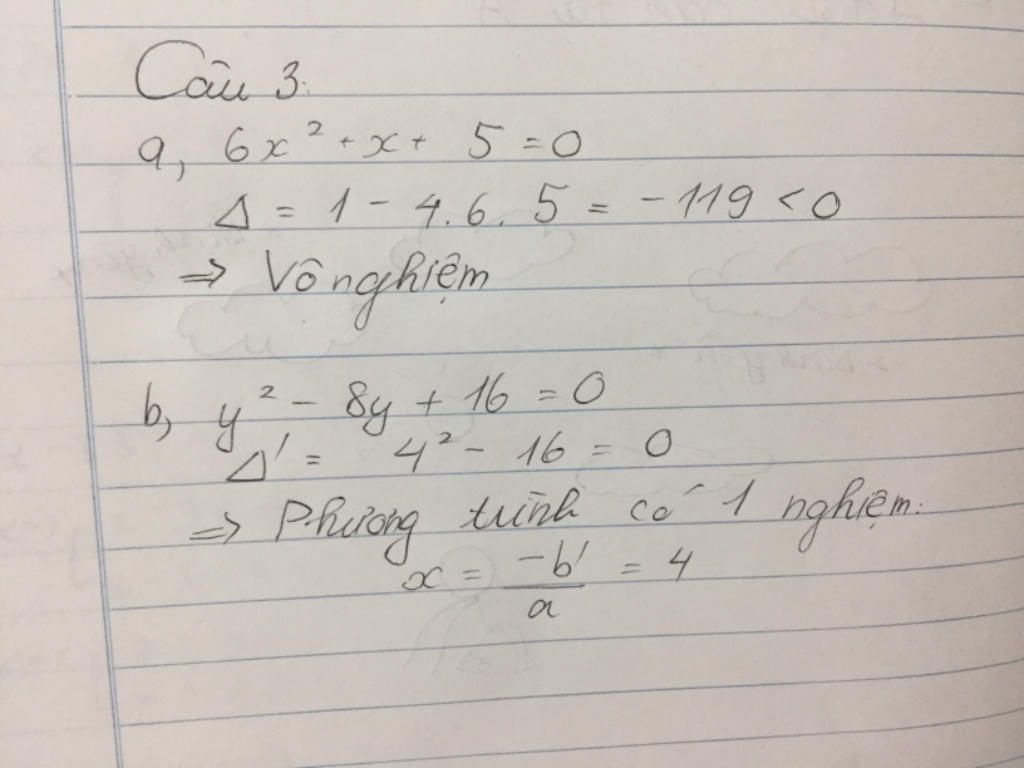 Câu 3:
a, 6x² + x + 5 = 0
Δ = 1 - 4.6.5 = -119 < 0
=> Vô nghiệm
b, y² - 8y + 16 = 0
Δ' = 4² - 16 = 0
=> Phương trình có 1 nghiệm:
x = -b'/a = 4